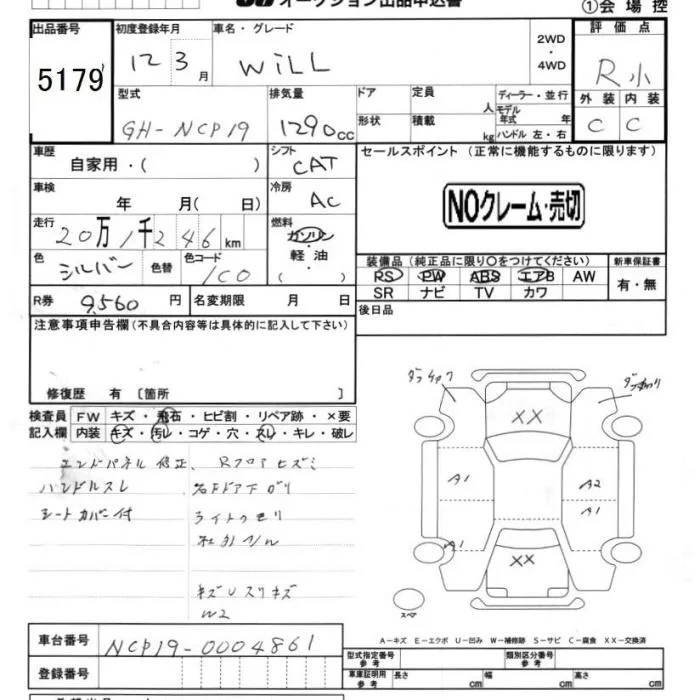 オークション出品申込書
①会場控
出品番号
5179
初度登録年月
12 3月
車名・グレード
WiLL
2WD
・
4WD
評価点
R小
外装 内装
C C
型式
GH-NCP19
排気量
1290cc
ドア
定員
人
形状
積載
kg
ディーラー・並行
モデル年式 年
ハンドル 左・右
車歴
自家用・( )
シフト
CAT
セールスポイント (正常に機能するものに限ります)
NOクレーム・売切
車検
年 月( 日)
冷房
AC
走行
20万1千246km
燃料
ガソリン
軽油
( )
色
シルバー
色替
色コード
1C0
装備品 (純正品に限り○をつけてください)
新車保証書
RS PW ABS エアB AW
SR ナビ TV カワ
有・無
R券
9,560円
名変期限 月 日
後日品
注意事項申告欄(不具合内容等は具体的に記入して下さい)
修復歴 有 〔箇所 〕
検査員記入欄
FW キズ・飛石・ヒビ割・リペア跡・×要
内装 キズ・汚レ・コゲ・穴・スレ・キレ・破レ
エンドパネル修正、Rフロアヒズミ
ハンドルスレ
シートカバー付
ライトクモリ
キズUスリキズ
W2
XX
A1
A2
A1
A1
XX
スペア
A-キズ E-エクボ U-凹み W-補修跡 S-サビ C-腐食 XX-交換済
車台番号
NCP19-0004861
登録番号
型式指定番号 参考
類別区分番号 参考
車庫証明用 参考
長さ cm 幅 cm 高さ cm